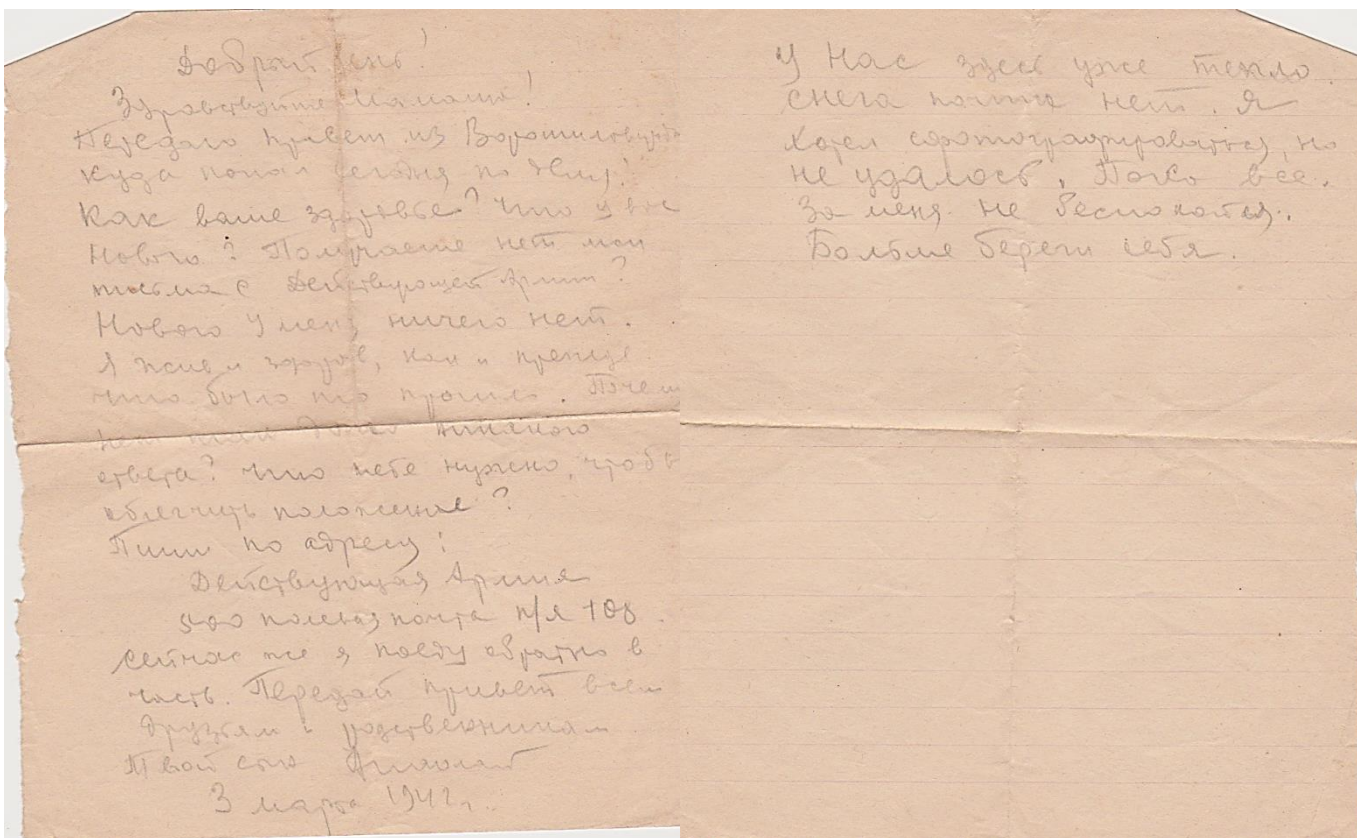 Добрый день!
Здравствуйте Мамаша!
Передаю привет из Ворошиловграда
куда попал сегодня по делу.
Как ваше здоровье? Что у вас
нового? Получаете нет мои
письма с Действующей Армии?
Нового у меня ничего нет.
Я жив и здоров, как и прежде
что было то прошло. Почему
нет никакого
ответа? Что тебе нужно, чтобы
облегчить положение?
Пиши по адресу:
Действующая Армия
500 полевая почта п/я 108
Сейчас же я поеду обратно в
часть. Передай привет всем
друзьям и родственникам
Твой сын
3 марта 1942 г.
У нас здесь уже тепло.
Снега почти нет. Я
хотел сфотографироваться, но
не удалось. Пока все.
За меня не беспокойся.
Больше береги себя.